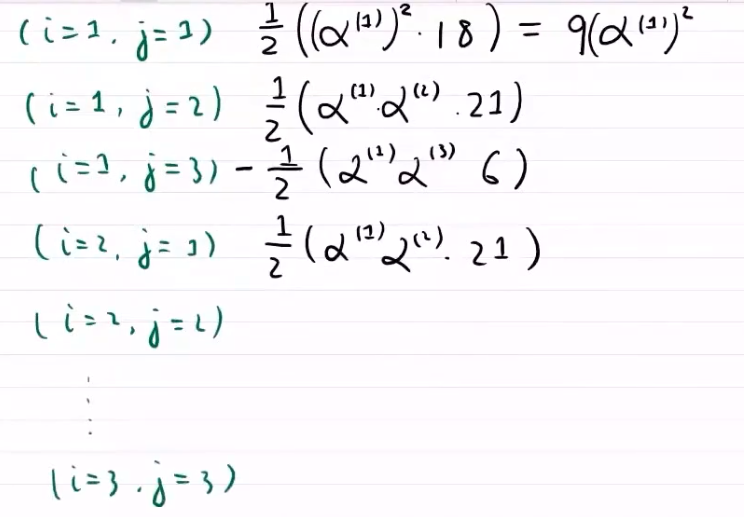 (i=1, j=1) 1/2 ((α^(1))^2 · 18) = 9(α^(1))^2
(i=1, j=2) 1/2 (α^(1) · α^(2) · 21)
(i=1, j=3) - 1/2 (α^(1) α^(3) 6)
(i=2, j=1) 1/2 (α^(1) α^(2) · 21)
(i=2, j=2)
⋮
(i=3, j=3)